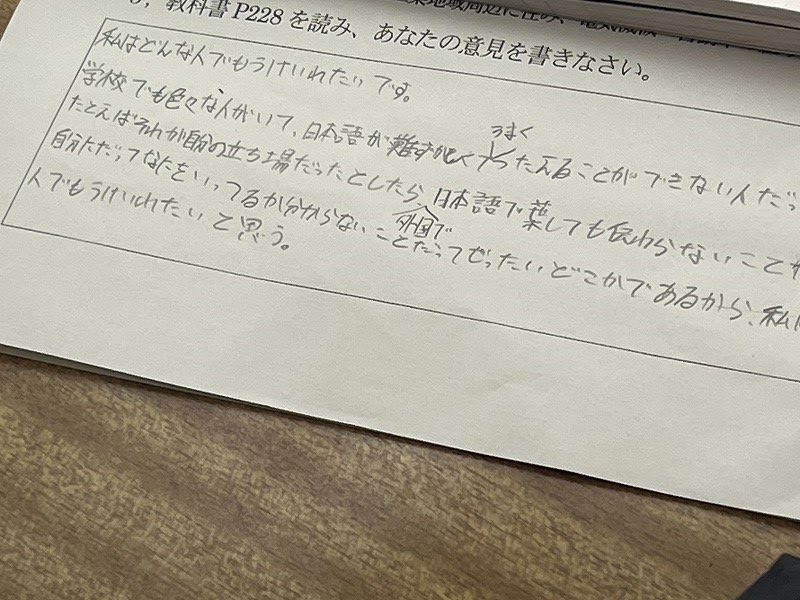 業地域周辺に住み、電気機械
、教科書 P228 を読み、あなたの意見を書きなさい。
私はどんな人でもうけいれたいです。
うまく
学校でも色々な人がいて、日本語が難ずかしくてったえることができない人だっ
たとえばそれが自分の立ち場だったとしたら、日本語で葉しても伝わらないことや
外国で
自分ただってなたをいってるか分からないことだってぜったいどこかであるから、私は
人でもうけいれたいと思う。